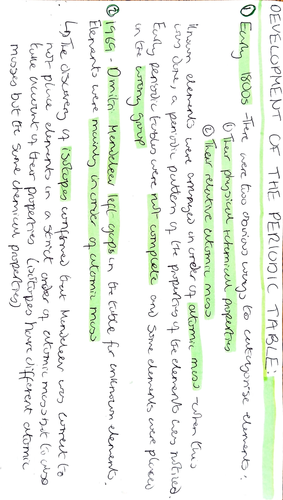 DEVELOPMENT OF THE PERIODIC TABLE:
① Early 1800s - There were two obvious ways to categorise elements:
① Their physical + chemical properties
② Their relative atomic mass
Known elements were arranged in order of atomic mass - when this
was done, a periodic pattern of the properties of the elements was noticed.
Early periodic tables were not complete and some elements were placed
in the wrong group
② 1969 - Dmitri Mendeleev left gaps in the table for unknown elements.
Elements were mainly in order of atomic mass
↳ The discovery of isotopes confirmed that Mendeleev was correct to
not place elements in a strict order of atomic mass but to also
take account of their properties (isotopes have different atomic
masses but the same chemical properties)